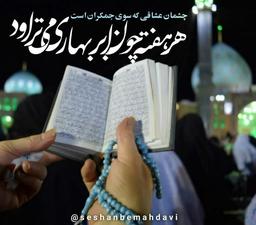 چشمان عشاقی که سوی جمکران است
هر هفته چون ابر بهاری می تراود
@seshanbemahdavi